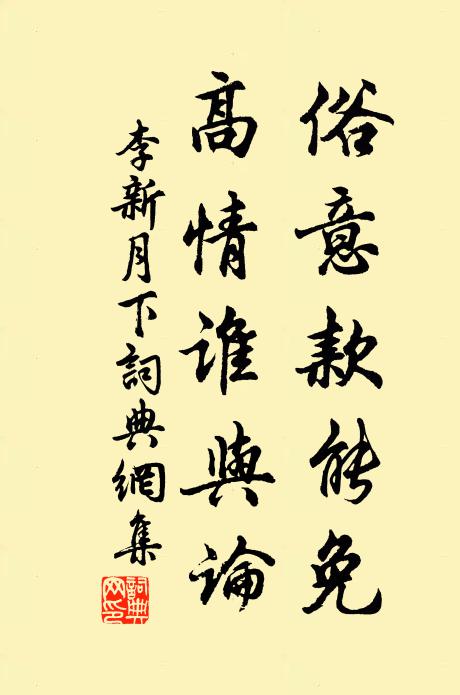 俗意款能免
高情誰與論
李新月下詞典網集
詞典網印